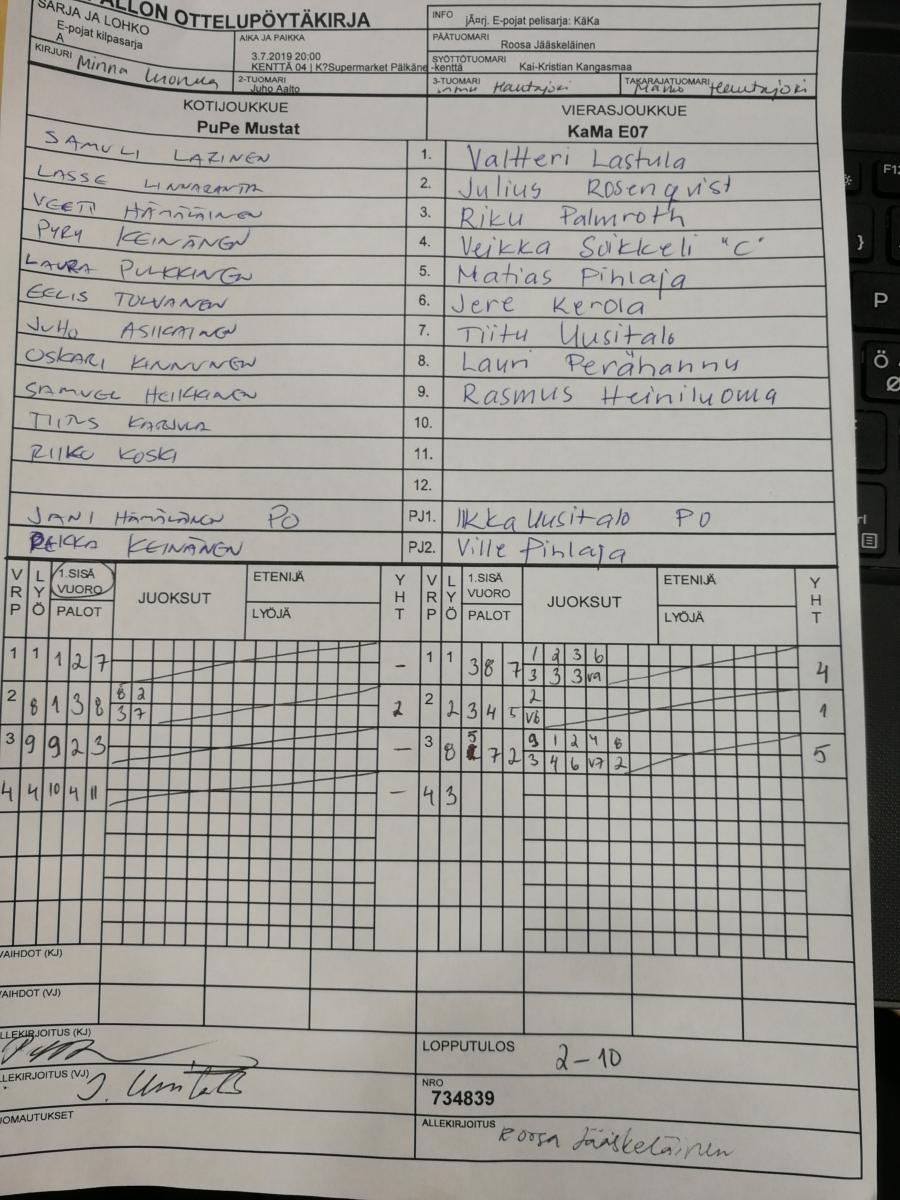 PALLON OTTELUPÖYTÄKIRJA
SARJA JA LOHKO
E-pojat kilpasarja
A
KIRJURI Minna
AIKA JA PAIKKA
3.7.2019 20:00
KENTTÄ 04 | K?Supermarket Pälkäne -kenttä
2-TUOMARI
Juho Aalto
INFO jÃ¤rj. E-pojat pelisarja: KäKa
PÄÄTUOMARI
Roosa Jääskeläinen
SYÖTTÖTUOMARI
Kai-Kristian Kangasmaa
3-TUOMARI Hautajoki
TAKARAJATUOMARI Hautajoki
KOTIJOUKKUE
PuPe Mustat
VIERASJOUKKUE
KaMa E07
SAMULI LAZINEN 1. Valtteri Lastula
LASSE LINNARANTA 2. Julius Rosenqvist
VEETI HÄMÄLÄINEN 3. Riku Palmroth
PYRY KEINÄNEN 4. Veikka Suikkeli "C"
LAURA PULKKINEN 5. Matias Pihlaja
EELIS TOLVANEN 6. Jere Kerola
JUHO ASIKAINEN 7. Tiitu Uusitalo
OSKARI KINNUNEN 8. Lauri Perähannu
SAMUEL HEIKKINEN 9. Rasmus Heiniluoma
10.
RIIKO KOSKI 11.
12.
JANI HÄMÄLÄINEN PO PJ1. Ilkka Uusitalo PO
PEKKA KEINÄNEN PJ2. Ville Pihlaja
VRP LYÖ 1.SISÄ VUORO PALOT JUOKSUT ETENIJÄ LYÖJÄ YHT VRP LYÖ 1.SISÄ VUORO PALOT JUOKSUT ETENIJÄ LYÖJÄ YHT
1 1 1 2 7 - 1 1 3 8 7 1 2 3 6 4
3 3 3 va
2 8 1 3 8 8 2 2 2 2 3 4 5 2 1
3 7 V6
3 9 9 2 3 - 3 8 5 7 2 9 1 2 4 8 5
3 4 6 V7 2
4 4 10 4 11 - 4 3
VAIHDOT (KJ)
VAIHDOT (VJ)
ALLEKIRJOITUS (KJ)
ALLEKIRJOITUS (VJ)
HUOMAUTUKSET
LOPPUTULOS 2-10
NRO
734839
ALLEKIRJOITUS Roosa Jääskeläinen
F12
}
P
Ö
Ø